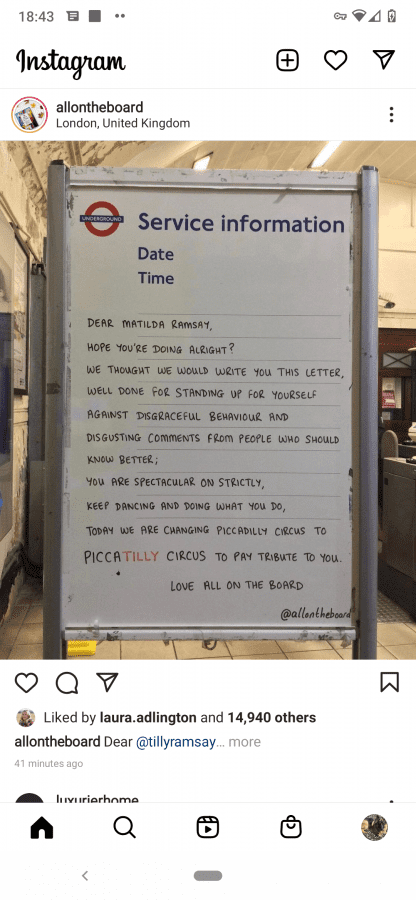 18:43
Instagram
allontheboard
London, United Kingdom
UNDERGROUND
Service information
Date
Time
DEAR MATILDA RAMSAY,
HOPE YOU'RE DOING ALRIGHT?
WE THOUGHT WE WOULD WRITE YOU THIS LETTER,
WELL DONE FOR STANDING UP FOR YOURSELF
AGAINST DISGRACEFUL BEHAVIOUR AND
DISGUSTING COMMENTS FROM PEOPLE WHO SHOULD
KNOW BETTER;
YOU ARE SPECTACULAR ON STRICTLY,
KEEP DANCING AND DOING WHAT YOU DO,
TODAY WE ARE CHANGING PICCADILLY CIRCUS TO
PICCATILLY CIRCUS TO PAY TRIBUTE TO YOU.
LOVE ALL ON THE BOARD
@allontheboard
Liked by laura.adlington and 14,940 others
allontheboard Dear @tillyramsay... more
41 minutes ago
luxurierhome